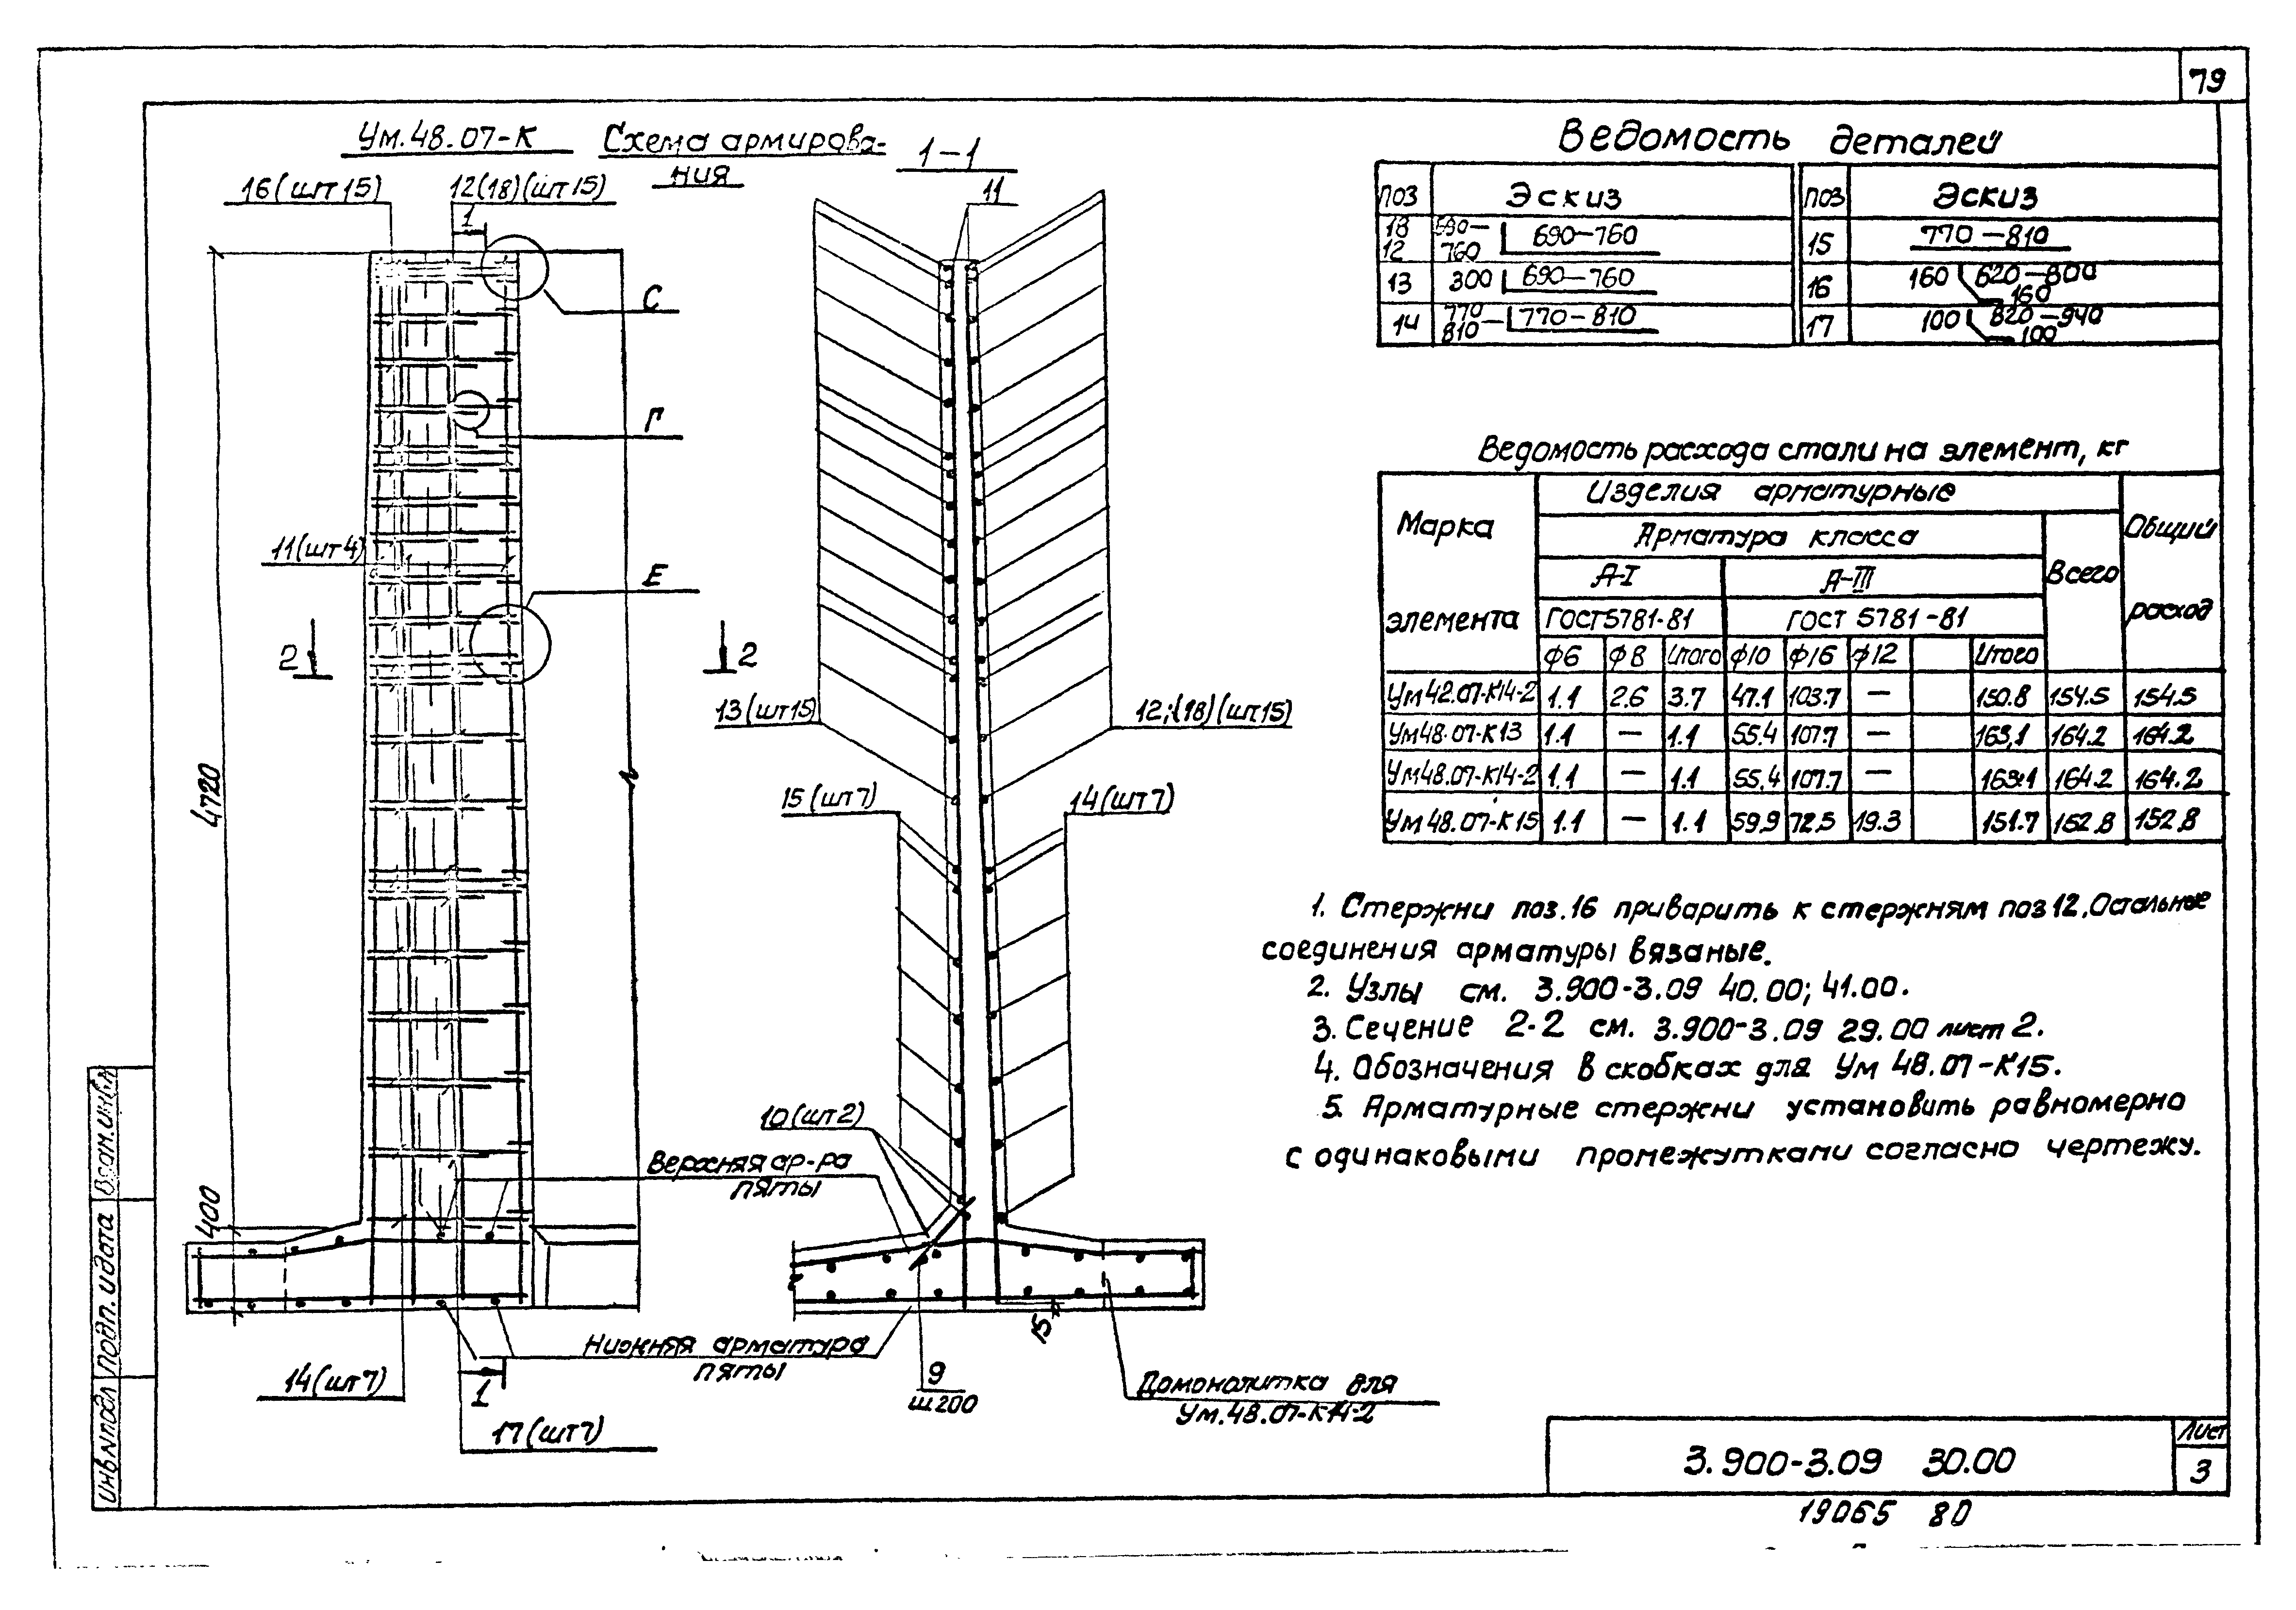 79
Ум.48.07-К Схема армирова-
ния
1-1
16(шт15)
12(18)(шт15)
1
11
С
Г
11(шт4)
Е
2
2
4720
400
13(шт15)
12;(18)(шт15)
15(шт7)
14(шт7)
10(шт2)
Верхняя ар-ра
пяты
Нижняя арматура
пяты
15
14(шт7)
1
17(шт7)
9
ш200
Домонолитка для
Ум.48.07-К14-2
Ведомость деталей
Поз Эскиз Поз Эскиз
18 690—
12 760 690—760 15 770—810
13 300 690—760 16 160 620—800 160
14 770 810— 770-810 17 100 820—940 100
Ведомость расхода стали на элемент, кг
Марка элемента
Изделия арматурные
Общий расход
Арматура класса
Всего
А-I А-III
ГОСТ5781-81 ГОСТ 5781-81
ф6 ф8 Итого ф10 ф16 ф12 Итого
Ум42.07-К14-2 1.1 2.6 3.7 47.1 103.7 — 150.8 154.5 154.5
Ум48.07-К13 1.1 — 1.1 55.4 107.7 — 163,1 164.2 164.2
Ум48.07-К14-2 1.1 — 1.1 55.4 107.7 — 163.1 164.2 164.2
Ум 48.07-К15 1.1 — 1.1 59.9 72.5 19.3 151.7 152.8 152.8
1. Стержни поз.16 приварить к стержням поз 12. Остальные
соединения арматуры вязаные.
2. Узлы см. 3.900-3.09 40.00; 41.00.
3. Сечение 2-2 см. 3.900-3.09 29.00 лист 2.
4. Обозначения в скобках для Ум 48.07-К15.
5. Арматурные стержни установить равномерно
с одинаковыми промежутками согласно чертежу.
Взам.инв.№
Подп. и дата
Инв.№подл
3.900-3.09 30.00
Лист
3
19065 80